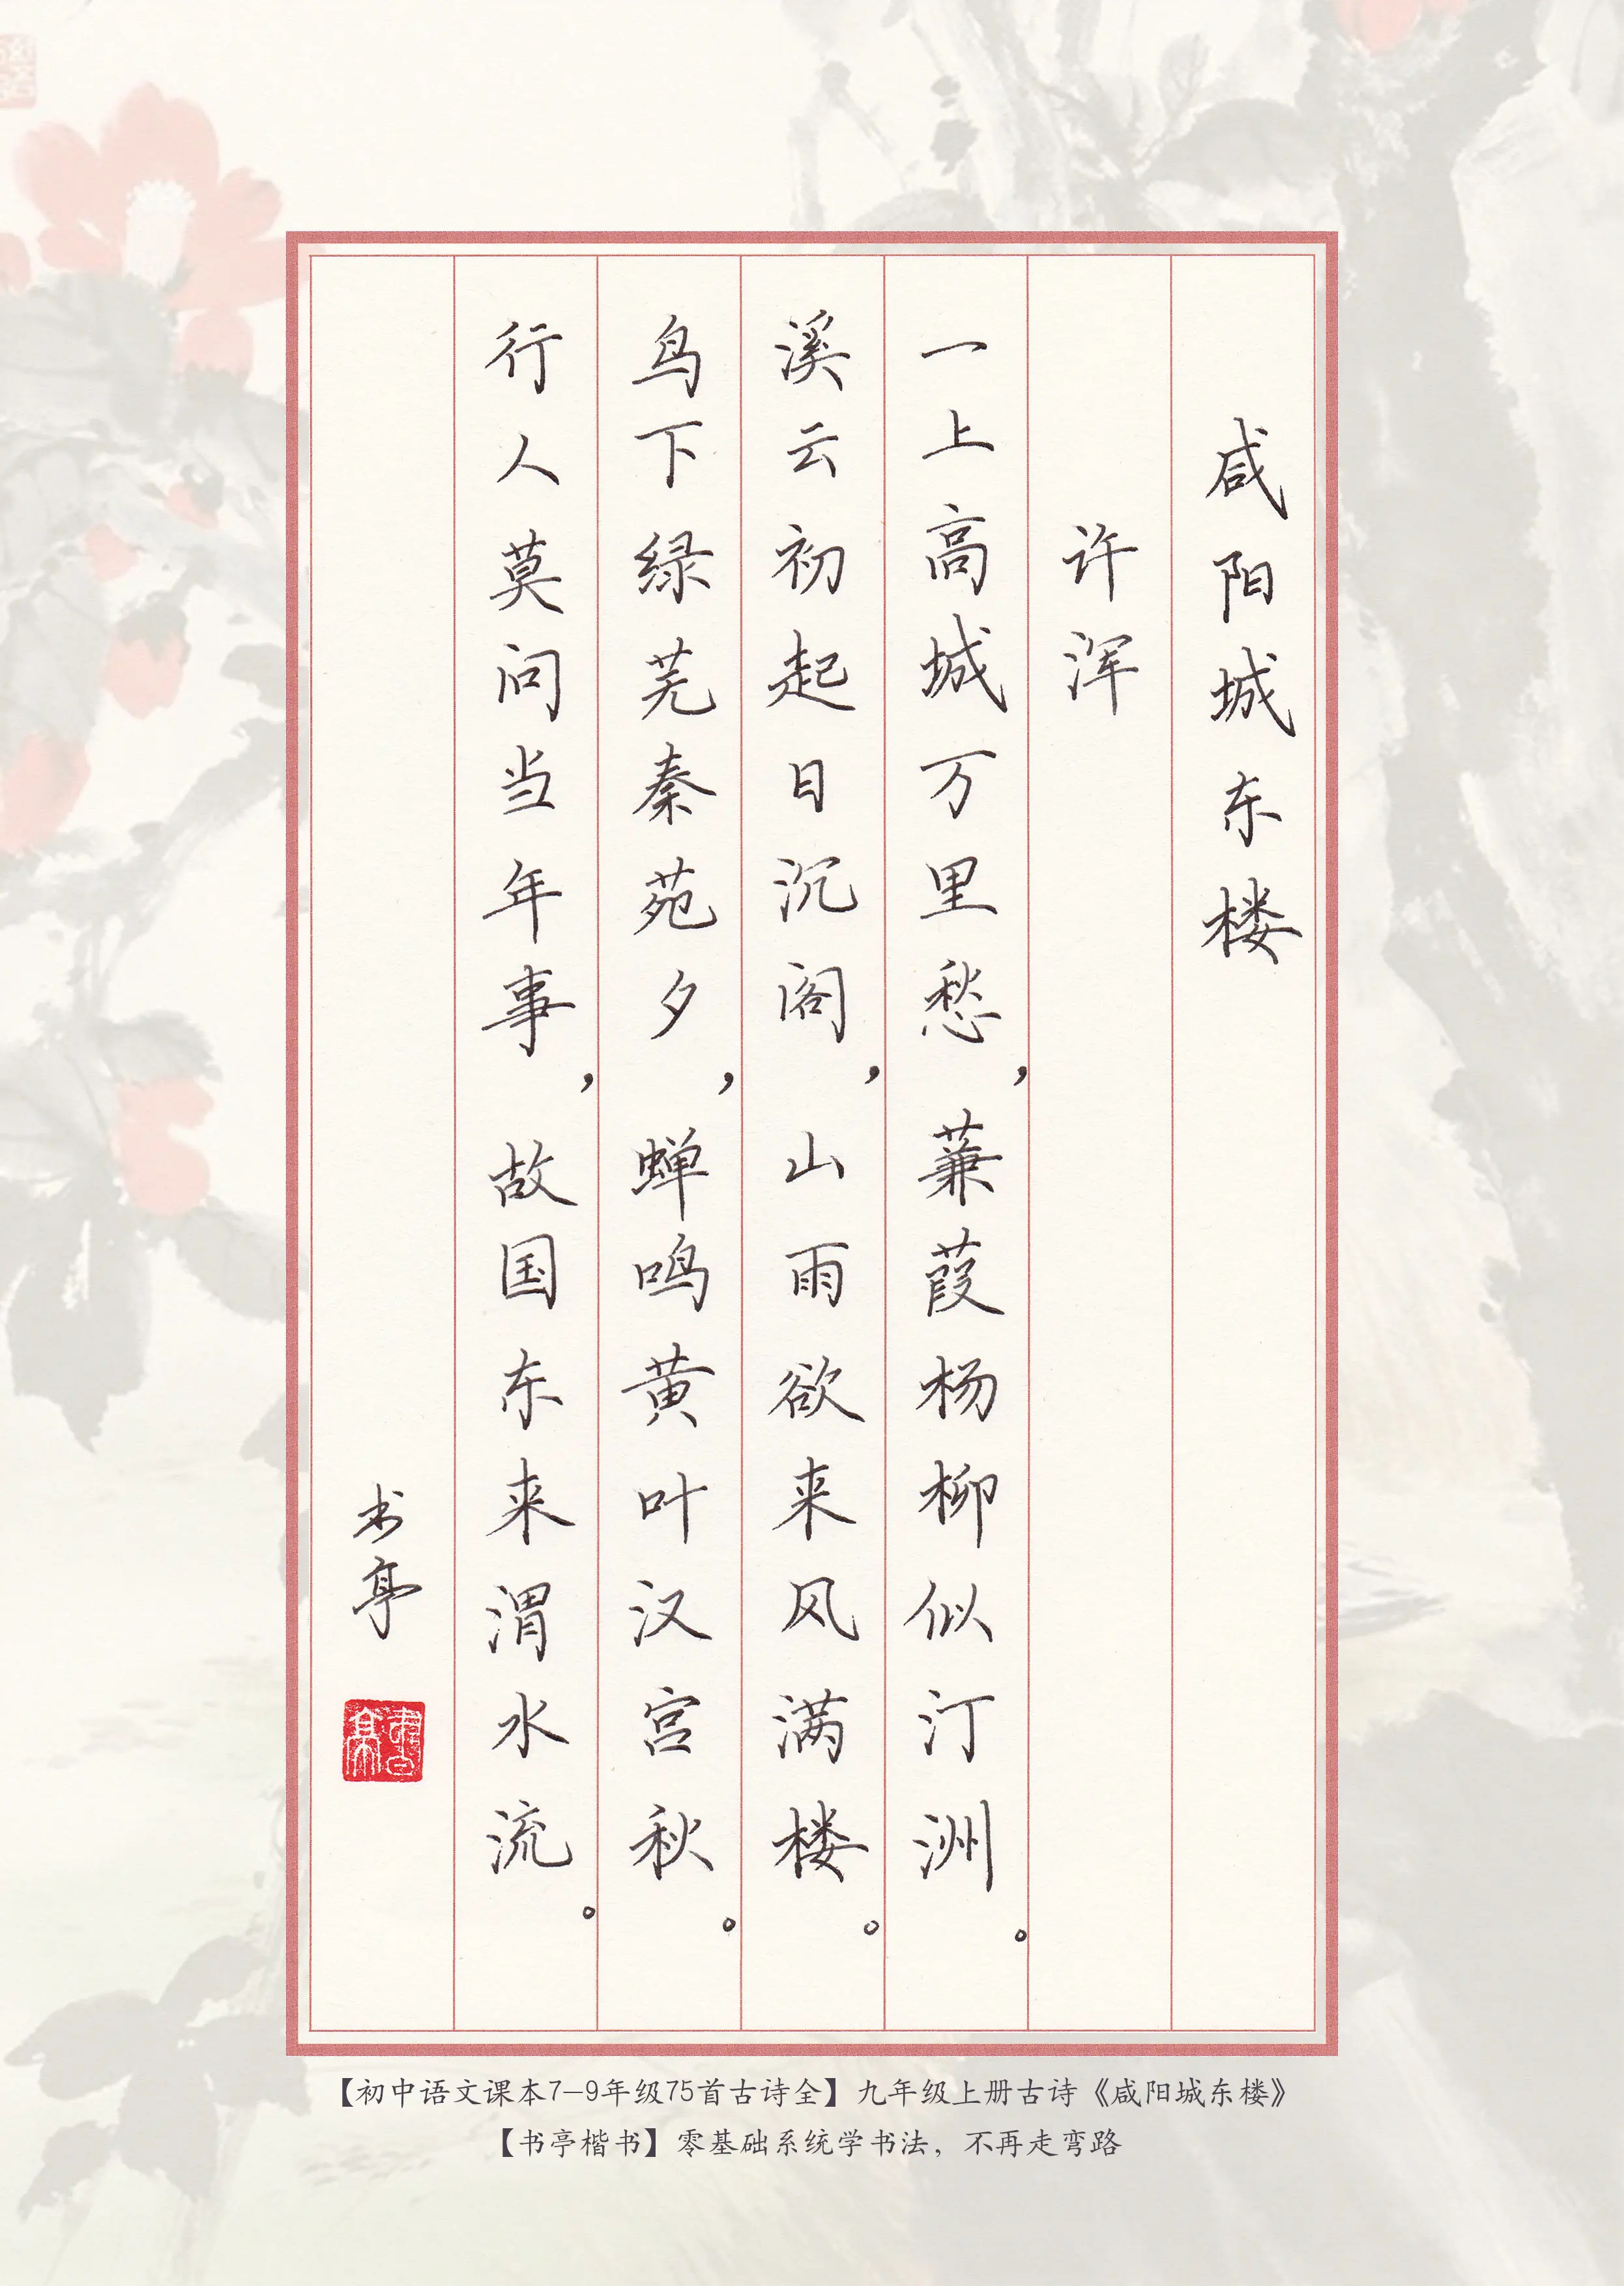 咸阳城东楼
许浑
一上高城万里愁，蒹葭杨柳似汀洲。
溪云初起日沉阁，山雨欲来风满楼。
鸟下绿芜秦苑夕，蝉鸣黄叶汉宫秋。
行人莫问当年事，故国东来渭水流。
书亭
書亭
【初中语文课本7-9年级75首古诗全】九年级上册古诗《咸阳城东楼》
【书亭楷书】零基础系统学书法，不再走弯路